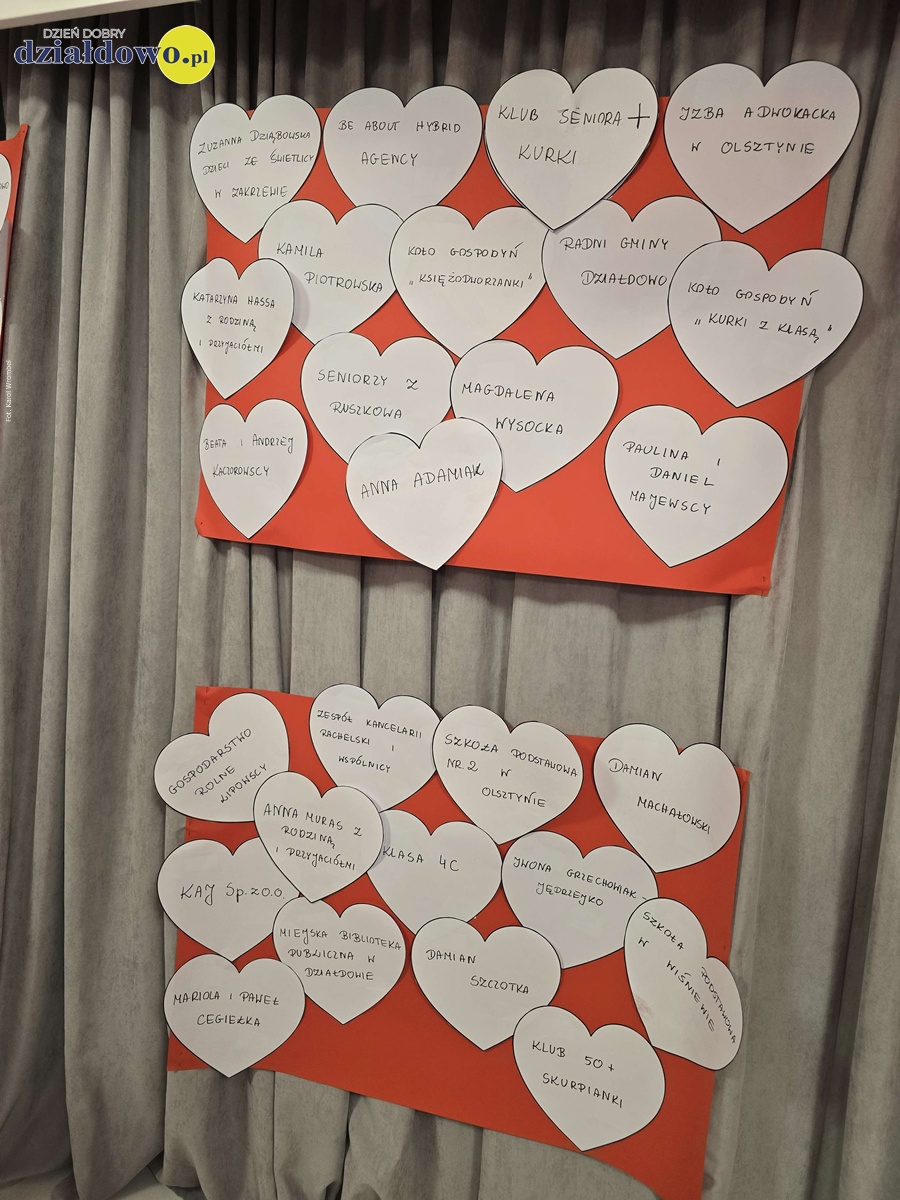 DZIEŃ DOBRY
działdowo.pl
Fot. Karol Wrombel
ZUZANNA DZIĄBOWSKA
DZIECI ZE ŚWIETLICY
W ZAKRZEWIE
BE ABOUT HYBRID
AGENCY
KLUB SENIORA +
KURKI
IZBA ADWOKACKA
W OLSZTYNIE
KAMILA
PIOTROWSKA
KOŁO GOSPODYŃ
„KSIĘŻODWORZANKI"
RADNI GMINY
DZIAŁDOWO
KOŁO GOSPODYŃ
„KURKI Z KLASĄ"
KATARZYNA HASSA
Z RODZINĄ
I PRZYJACIÓŁMI
SENIORZY Z
RUSZKOWA
MAGDALENA
WYSOCKA
BEATA I ANDRZEJ
KACZOROWSCY
ANNA ADAMIAK
PAULINA I
DANIEL
MAJEWSCY
GOSPODARSTWO
ROLNE
LIPOWSCY
ZESPÓŁ KANCELARII
RACHELSKI I
WSPÓLNICY
SZKOŁA PODSTAWOWA
NR. 2 W
OLSZTYNIE
DAMIAN
MACHAŁOWSKI
ANNA MURAS Z
RODZINĄ
I PRZYJACIÓŁMI
KLASA 4C
IWONA GRZECHOWIAK-
JĘDRZEJKO
KAJ Sp. z o.o.
MIEJSKA BIBLIOTEKA
PUBLICZNA W
DZIAŁDOWIE
DAMIAN
SZCZOTKA
SZKOŁA PODSTAWOWA
W WIŚNIEWIE
MARIOLA I PAWEŁ
CEGIEŁKA
KLUB 50+
SKURPIANKI